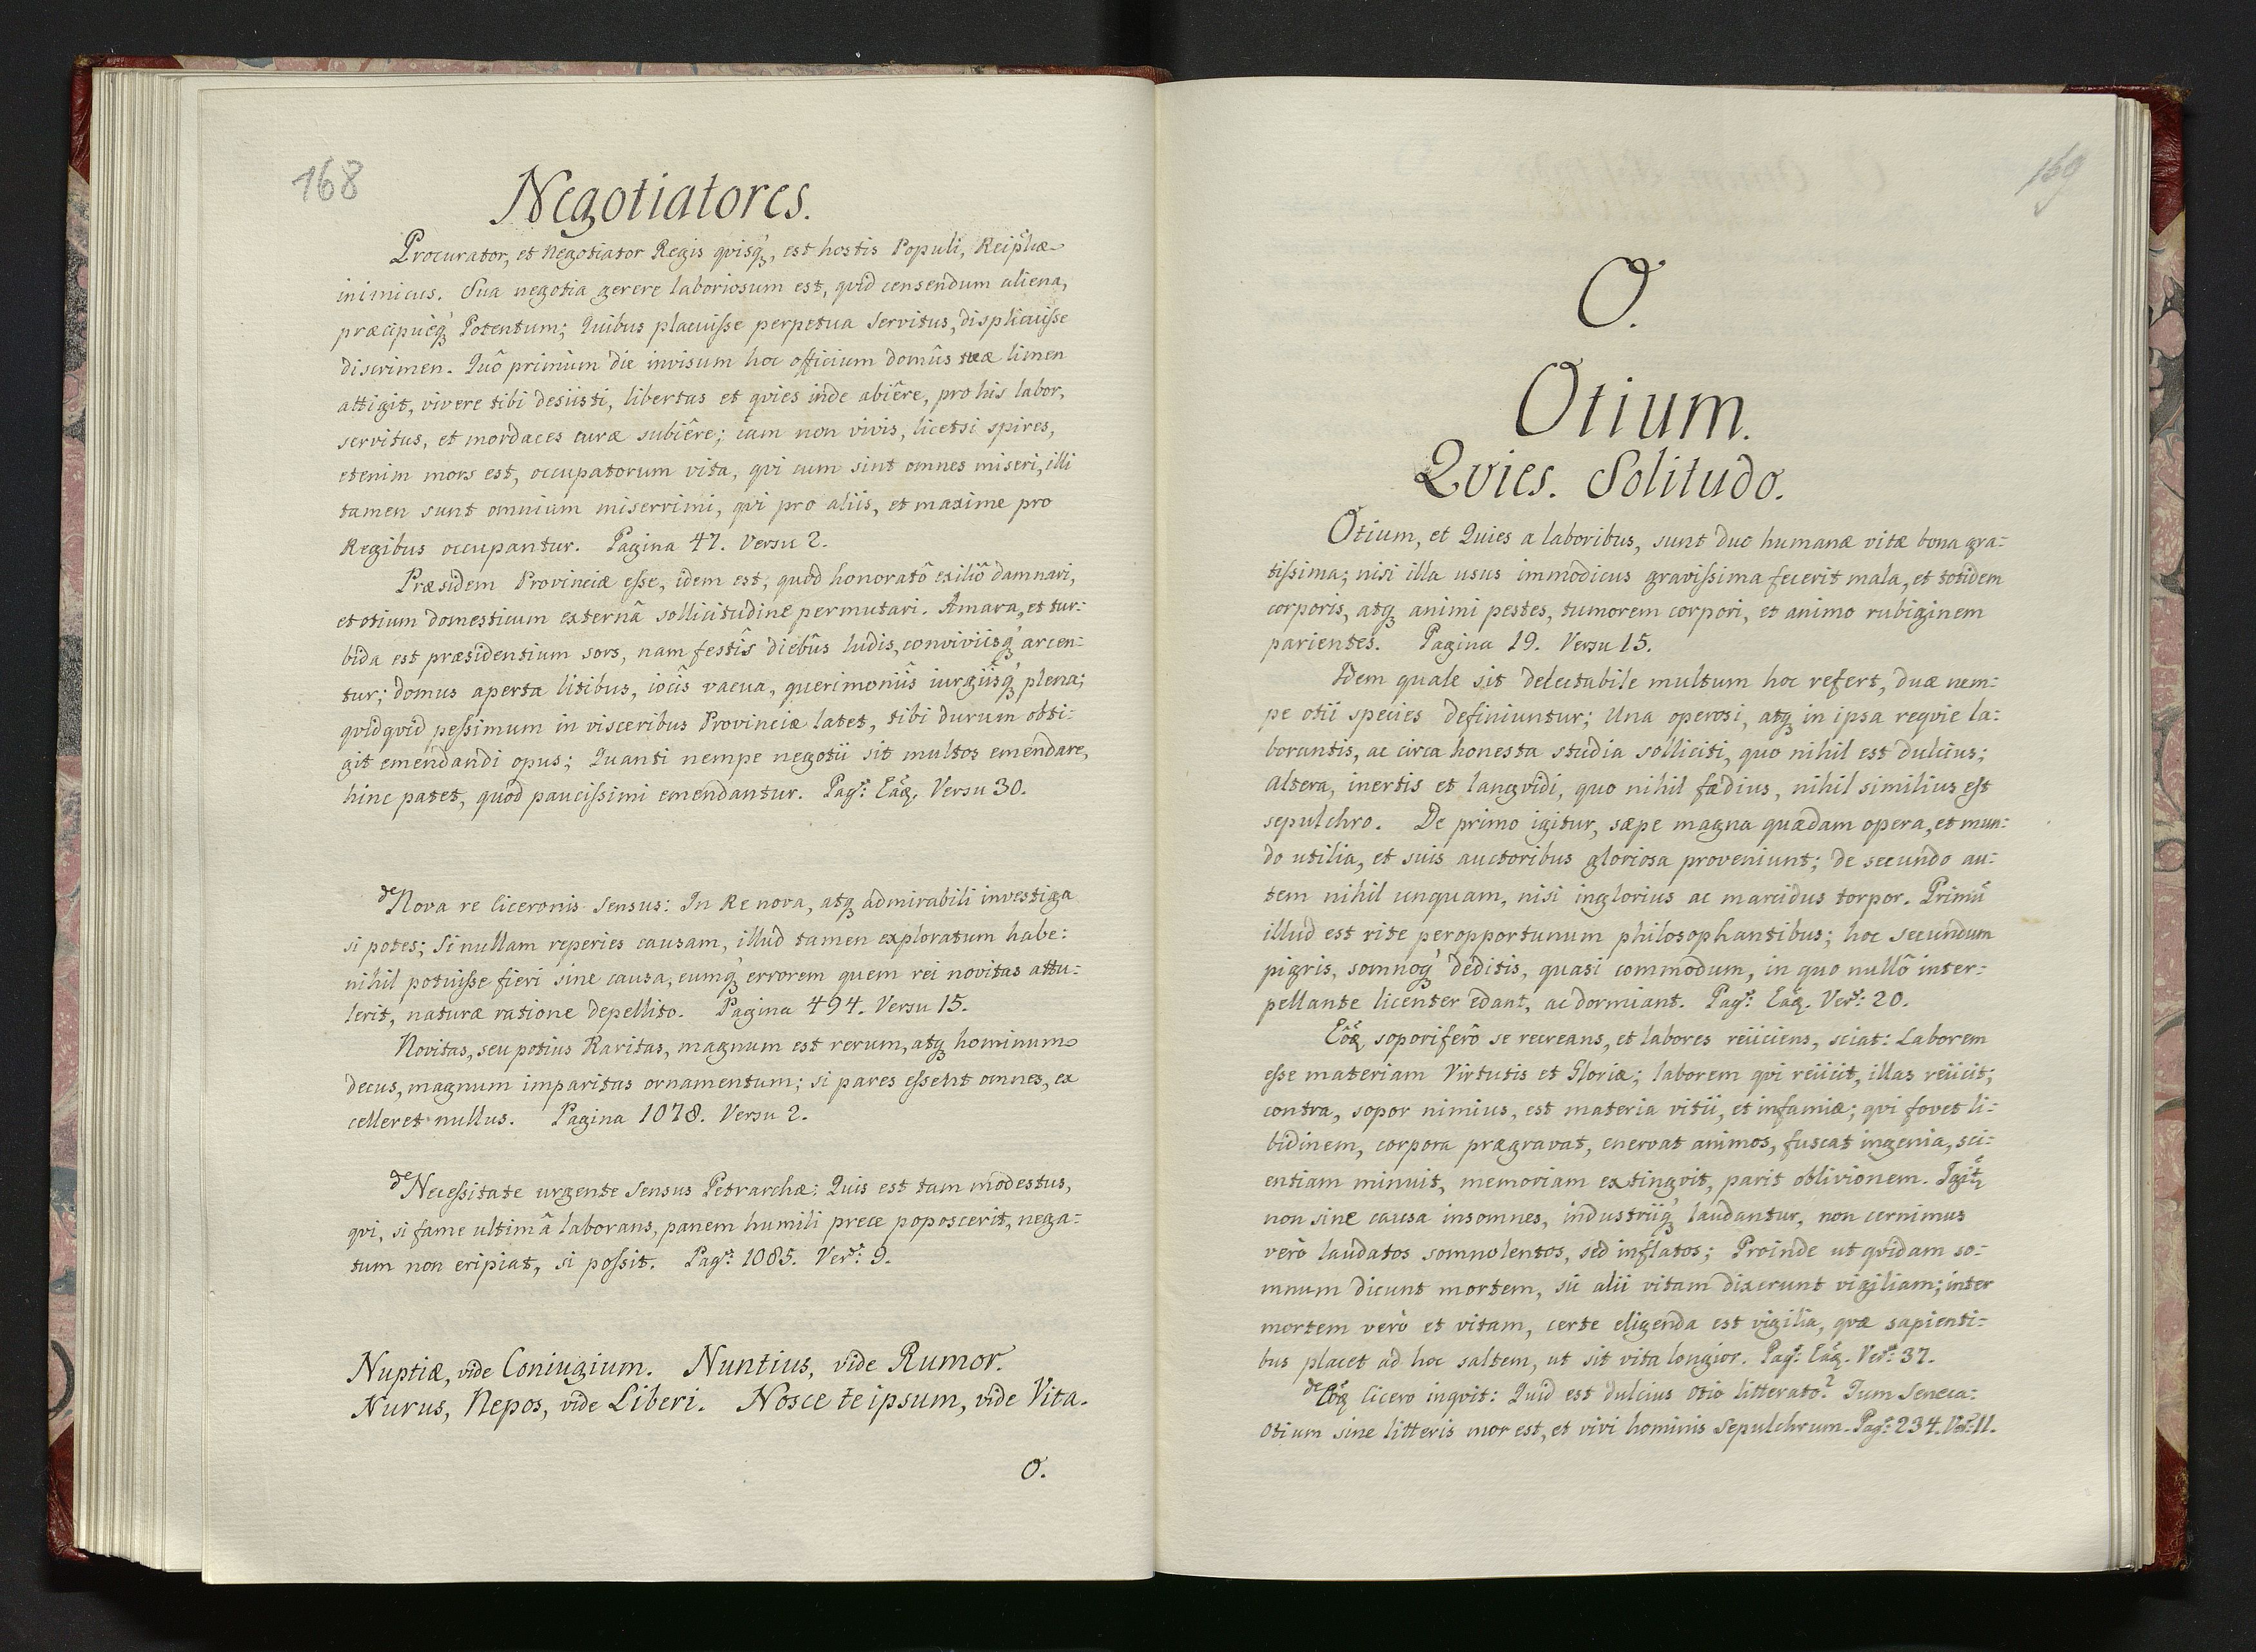 168
Negotiatores.
Procurator, et Negotiator Regis qvisq́ꝫ, est hostis Populi, Reipl̃icæ
inimicus. Sua negotia gerere laboriosum est, qvid censendum aliena,
præcipuèq́ꝫ Potentum; Quibus placuiſse perpetua Servitus, displicuiſse
discrimen. Quô primùm die invisum hoc officium domûs tuæ limen
attigit, vivere tibi desiisti, libertas et qvies inde abiêre, pro his labor,
servitus, et mordaces curæ subiêre; iam non vivis, licetsi spires,
etenim mors est, occupatorum vita, qvi cum sint omnes miseri, illi
tamen sunt omnium miserrimi, qvi pro aliis, et maxime pro
Regibus occupantur. Pagina 47. Versu 2.
Præsidem Provinciæ eſse, idem est, quòd honoratô exiliô damnari,
et otium domesticum externâ sollicitudine permutari. Amara, et tur:
bida est præsidentium sors, nam festîs diebûs ludis, conviviisq́ꝫ arcen:
tur; domus aperta litibus, iocîs vacua, querimoniîs iurgiîsq́ꝫ plena;
qvidqvid peſsimum in visceribus Provinciæ latet, tibi durum obti:
git emendandi opus; Quanti nempe negotii sit multos emendare,
hinc patet, quòd pauciſsimi emendantur. Pag: Eãdꝫ. Versu 30.
de Nova re Ciceronis Sensus: In Re nova, atqꝫ admirabili investiga
si potes; Si nullam reperies causam, illud tamen exploratum habe:
nihil potuiſse fieri sine causa, eumq́ꝫ errorem quem rei novitas attu:
lerit, naturæ ratione depellito. Pagina 494. Versu 15.
Novitas, seu potius Raritas, magnum est rerum, atqꝫ hominum
decus, magnum imparitas ornamentum; si pares eſsent omnes, ex
celleret nullus. Pagina 1078. Versu 2.
de Neceſsitate urgente Sensus Petrarchæ: Quis est tam modestus,
qvi, si fame ultimâ laborans, panem humili prece poposcerit, nega:
tum non eripiat, si poſsit. Pag: 1085. Ver: 9.
Nuptiæ, vide Coniugium. Nuntius, vide Rumor.
Nurus, Nepos, vide Liberi. Nosce te ipsum, vide Vita.
O.
169
O.
Otium.
Qvies. Solitudo.
Otium, et Quies a laboribus, sunt duo humanæ vitæ bona gra:
tiſsima; nisi illa usus immodicus graviſsima fecerit mala, et totidem
corporis, atqꝫ animi pestes, tumorem corpori, et animo rubiginem
parientes. Pagina 19. Versu 15.
Idem quale sit delectabile multum hoc refert, duæ nem:
pe otii species definiuntur; Una operosi, atqꝫ in ipsa reqvie la:
borantis, ac circa honesta studia solliciti, quo nihil est dulcius;
Altera, inertis et langvidi, quo nihil fædius, nihil similius est
sepulchro. De primo igitur, sæpe magna quædam opera, et mun:
do utilia, et suis auctoribus gloriosa proveniunt; de secundo au:
tem nihil unquam, nisi inglorius ac marcidus torpor. Primũ
illud est rite peropportunum philosophantibus; hoc secundum
pigris, somnoq́ꝫ deditis, quasi commodum, in quo nullô inter:
pellante licenter edant, ac dormiant. Pag: Eãdꝫ. Ver: 20.
Eõdꝫ soporiferô se recreans, et labores reiiciens, sciat: Laborem
eſse materiam Virtutis et Gloriæ; laborem qvi reiicit, illas reiicit;
contra, sopor nimius, est materia vitii, et infamiæ; qvi fovet li:
bidinem, corpora prægravat, enervat animos, fuscat ingenia, sci:
entiam minuit, memoriam extingvit, parit oblivionem. Igit̃
non sine causa insomnes, industriiq́ꝫ laudantur, non cernimus
verò laudatos somnolentos, sed inflatos; Proinde ut qvidam so:
mnum dicunt mortem, sic alii vitam dixerunt vigiliam; inter
mortem verò et vitam, certe eligenda est vigilia, qvæ sapienti:
bus placet ad hoc saltem, ut sit vita longior. Pag: Eãdꝫ. Ver: 37.
de Eõdꝫ Cicero inqvit: Quid est dulcius Otio litterato? Tum Seneca:
Otium sine litteris mor est, et vivi hominis Sepulchrum. Pag: 234. Ver: 11.